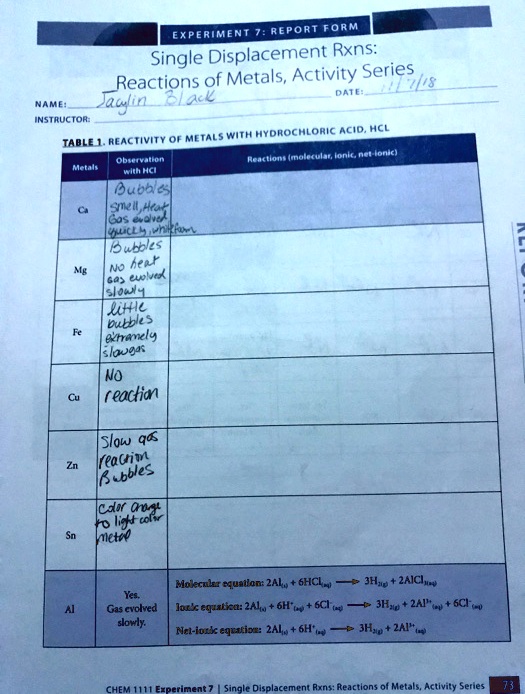 EXPERIMENT 7: REPORT FORM
Single Displacement Rxns:
Reactions of Metals, Activity Series
NAME: Jacylin Black
DATE: 11/7/18
INSTRUCTOR:
TABLE 1. REACTIVITY OF METALS WITH HYDROCHLORIC ACID, HCL
Metals
Observation
with HCl
Reactions (molecular, ionic, net-ionic)
Ca
Bubbles
smell, Heat
Gas evolved
quickly, white foam
Mg
Bubbles
No heat
Gas evolved
slowly
Fe
little
bubbles
extramely
slow gas
Cu
No
reaction
Zn
Slow gas
reaction
Bubbles
Sn
Color change
to light color
metal
Al
Yes.
Gas evolved
slowly.
Molecular equation: 2Al(s) + 6HCl(aq) → 3H2(g) + 2AlCl3(aq)
Ionic equation: 2Al(s) + 6H+(aq) + 6Cl-(aq) → 3H2(g) + 2Al3+(aq) + 6Cl-(aq)
Net-ionic equation: 2Al(s) + 6H+(aq) → 3H2(g) + 2Al3+(aq)
CHEM 1111 Experiment 7 | Single Displacement Rxns: Reactions of Metals, Activity Series 73